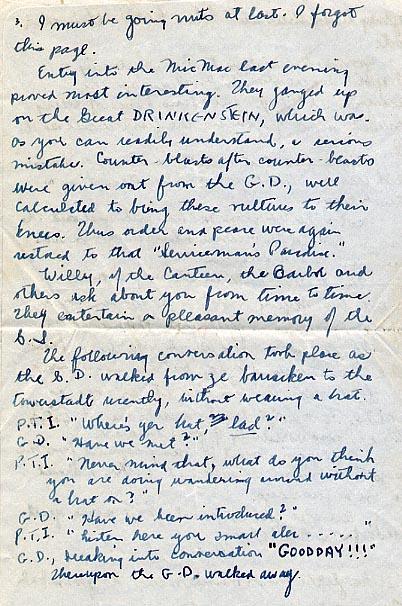 3. I must be going nuts at last. I forgot
this page.
Entry into the MicMac last evening
proved most interesting. They ganged up
on the Great DRINKENSTEIN, which was
as you can readily understand, a serious
mistake. Counter-blasts after counter-blasts
were given out from the G.D., well
calculated to bring these vultures to their
knees. Thus order and peace were again
restored to that "Serviceman's Paradise."
Willy, of the Canteen, the Barbot and
others ask about you from time to time.
They entertain a pleasant memory of the
S.I.
The following conversation took place as
the G.D. walked from ze barracken to the
towerstadt recently, without wearing a hat.
P.T.I. "Where's yer hat, lad?"
G.D. "Have we met?"
P.T.I. "Never mind that, what do you think
you are doing wandering around without
a hat on?"
G.D. "Have we been introduced?"
P.T.I. "Listen here you smart alec ..... "
G.D., breaking into conversation "GOODDAY!!!"
Thereupon the G.D. walked away.